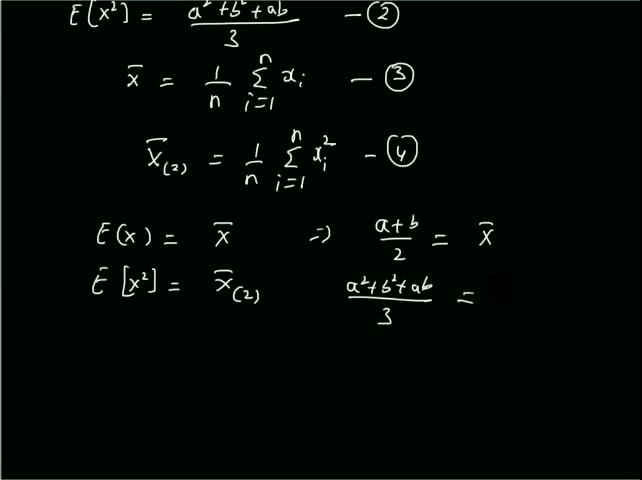 E[x²] = a²+b²+ab / 3 — ②
x̄ = 1/n Σ_{i=1}^{n} x_i — ③
x̄_(2) = 1/n Σ_{i=1}^{n} x_i² — ④
E(x) = x̄ ⇒ a+b / 2 = x̄
E[x²] = x̄_(2) a²+b²+ab / 3 =